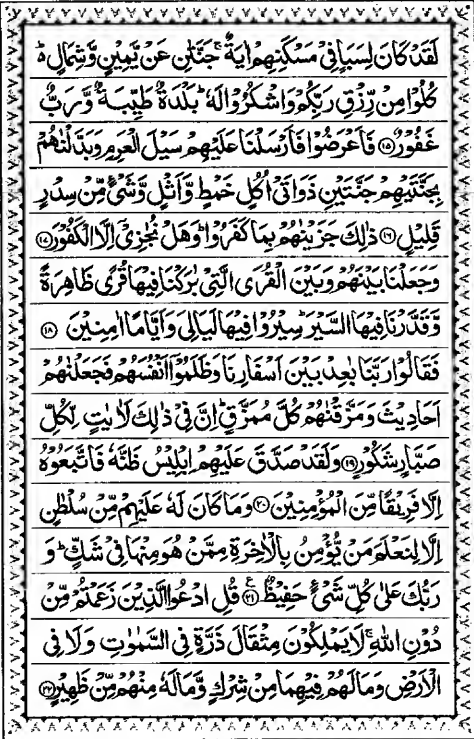 لَقَدۡ كَانَ لِسَبَاٍ فِىۡ مَسۡكَنِهِمۡ اٰيَةٌ ۚ جَنَّتٰنِ عَنۡ يَّمِيۡنٍ وَّشِمَالٍ ؕ
كُلُوۡا مِنۡ رِّزۡقِ رَبِّكُمۡ وَاشۡكُرُوۡا لَهٗ ؕ بَلۡدَةٌ طَيِّبَةٌ وَّرَبٌّ
غَفُوۡرٌ ﴿۱۵﴾ فَاَعۡرَضُوۡا فَاَرۡسَلۡنَا عَلَيۡهِمۡ سَيۡلَ الۡعَرِمِ وَبَدَّلۡنٰهُمۡ
بِجَنَّتَيۡهِمۡ جَنَّتَيۡنِ ذَوَاتَىۡ اُكُلٍ خَمۡطٍ وَّاَثۡلٍ وَّشَىۡءٍ مِّنۡ سِدۡرٍ
قَلِيۡلٍ ﴿۱۶﴾ ذٰلِكَ جَزَيۡنٰهُمۡ بِمَا كَفَرُوۡا ؕ وَهَلۡ نُجٰزِىۡۤ اِلَّا الۡكَفُوۡرَ ﴿۱۷﴾
وَجَعَلۡنَا بَيۡنَهُمۡ وَبَيۡنَ الۡقُرَى الَّتِىۡ بٰرَكۡنَا فِيۡهَا قُرًى ظَاهِرَةً
وَّقَدَّرۡنَا فِيۡهَا السَّيۡرَ ؕ سِيۡرُوۡا فِيۡهَا لَيَالِىَ وَاَيَّامًا اٰمِنِيۡنَ ﴿۱۸﴾
فَقَالُوۡا رَبَّنَا بٰعِدۡ بَيۡنَ اَسۡفَارِنَا وَظَلَمُوۡۤا اَنۡفُسَهُمۡ فَجَعَلۡنٰهُمۡ
اَحَادِيۡثَ وَمَزَّقۡنٰهُمۡ كُلَّ مُمَزَّقٍ ؕ اِنَّ فِىۡ ذٰلِكَ لَاٰيٰتٍ لِّكُلِّ
صَبَّارٍ شَكُوۡرٍ ﴿۱۹﴾ وَلَقَدۡ صَدَّقَ عَلَيۡهِمۡ اِبۡلِيۡسُ ظَنَّهٗ فَاتَّبَعُوۡهُ
اِلَّا فَرِيۡقًا مِّنَ الۡمُؤۡمِنِيۡنَ ﴿۲۰﴾ وَمَا كَانَ لَهٗ عَلَيۡهِمۡ مِّنۡ سُلۡطٰنٍ
اِلَّا لِنَعۡلَمَ مَنۡ يُّؤۡمِنُ بِالۡاٰخِرَةِ مِمَّنۡ هُوَ مِنۡهَا فِىۡ شَكٍّ ؕ وَ
رَبُّكَ عَلٰى كُلِّ شَىۡءٍ حَفِيۡظٌ ﴿۲۱﴾ قُلِ ادۡعُوا الَّذِيۡنَ زَعَمۡتُمۡ مِّنۡ
دُوۡنِ اللّٰهِ ۚ لَا يَمۡلِكُوۡنَ مِثۡقَالَ ذَرَّةٍ فِى السَّمٰوٰتِ وَلَا فِى
الۡاَرۡضِ وَمَا لَهُمۡ فِيۡهِمَا مِنۡ شِرۡكٍ وَّمَا لَهٗ مِنۡهُمۡ مِّنۡ ظَهِيۡرٍ ﴿۲۲﴾